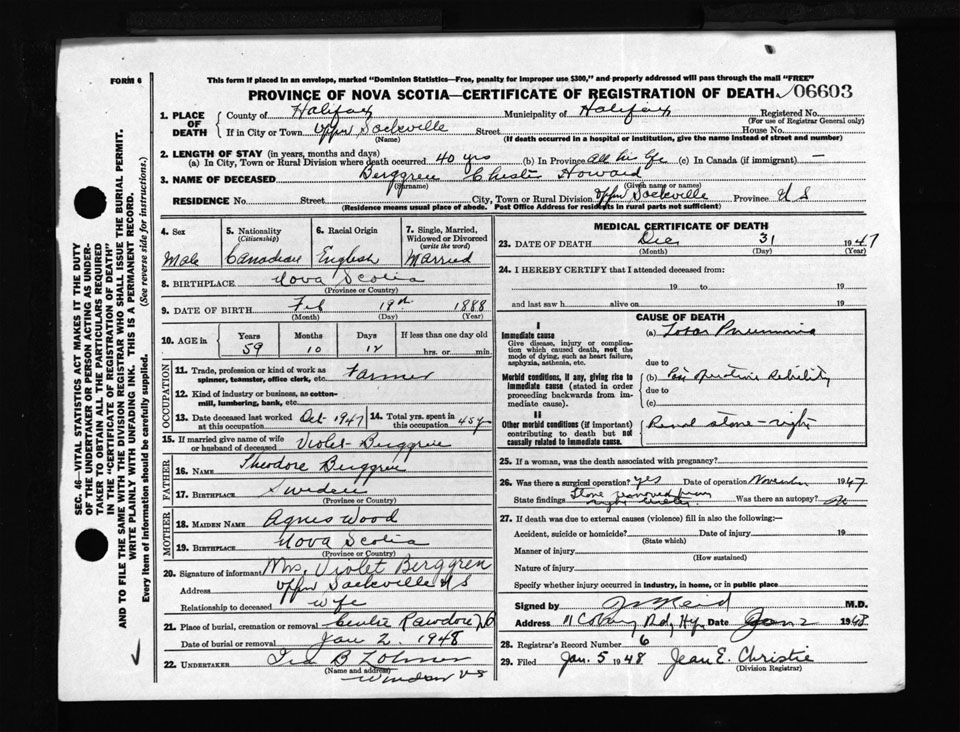 FORM 6
This form if placed in an envelope, marked "Dominion Statistics—Free, penalty for improper use $300," and properly addressed will pass through the mail "FREE"
PROVINCE OF NOVA SCOTIA—CERTIFICATE OF REGISTRATION OF DEATH. 06603
1. PLACE OF DEATH County of Halifax Municipality of Halifax Registered No.
(For use of Registrar General only)
If in City or Town Upper Sackville Street House No.
(Name) (If death occurred in a hospital or institution, give the name instead of street and number)
2. LENGTH OF STAY (in years, months and days)
(a) In City, Town or Rural Division where death occurred 40 yrs (b) In Province All his life (c) In Canada (if immigrant) —
3. NAME OF DECEASED Berggren Howard
(Surname) (Given name or names)
RESIDENCE No. Street City, Town or Rural Division Upper Sackville Province N S
(Residence means usual place of abode. Post Office Address for residents in rural parts not sufficient)
4. Sex Male
5. Nationality (Citizenship) Canadian
6. Racial Origin English
7. Single, Married, Widowed or Divorced (write the word) Married
8. BIRTHPLACE Nova Scotia
(Province or Country)
9. DATE OF BIRTH Feb 19th 1888
(Month) (Day) (Year)
10. AGE in Years Months Days If less than one day old
59 10 12 hrs. or min.
OCCUPATION
11. Trade, profession or kind of work as spinner, teamster, office clerk, etc. Farmer
12. Kind of industry or business, as cotton-mill, lumbering, bank, etc.
13. Date deceased last worked at this occupation Oct 1947
14. Total yrs. spent in this occupation 45 y
15. If married give name of wife or husband of deceased Violet Berggren
FATHER
16. NAME Theodore Berggren
17. BIRTHPLACE Sweden
(Province or Country)
MOTHER
18. MAIDEN NAME Agnes Wood
19. BIRTHPLACE Nova Scotia
(Province or Country)
20. Signature of informant Mrs. Violet Berggren
Address Upper Sackville N S
Relationship to deceased Wife
21. Place of burial, cremation or removal Centre Rawdon
Date of burial or removal Jan 2 1948
22. UNDERTAKER Ira B
(Name and address) Windsor N S
MEDICAL CERTIFICATE OF DEATH
23. DATE OF DEATH Dec 31 1947
(Month) (Day) (Year)
24. I HEREBY CERTIFY that I attended deceased from:
19 to 19
and last saw h alive on 19
CAUSE OF DEATH
I
Immediate cause (a) Lobar Pneumonia
Give disease, injury or complication which caused death, not the mode of dying, such as heart failure, asphyxia, asthenia, etc.
due to
Morbid conditions, if any, giving rise to immediate cause (stated in order proceeding backwards from immediate cause). (b) Post operative debility
due to
(c)
II
Other morbid conditions (if important) contributing to death but not causally related to immediate cause. Renal stone - right
25. If a woman, was the death associated with pregnancy?
26. Was there surgical operation? yes Date of operation November 1947
State findings Stone removed from right Was there an autopsy? No
27. If death was due to external causes (violence) fill in also the following:—
Accident, suicide or homicide? Date of injury 19
(State which)
Manner of injury
(How sustained)
Nature of injury
Specify whether injury occurred in industry, in home, or in public place
Signed by M.D.
Address Date Jan 2 1948
28. Registrar's Record No. 6
29. Filed Jan. 5 1948 Jean E. Christie
(Division Registrar)
SEC. 46—VITAL STATISTICS ACT MAKES IT THE DUTY
OF THE UNDERTAKER OR PERSON ACTING AS UNDER-
TAKER TO OBTAIN ALL THE PARTICULARS REQUIRED
IN THE "CERTIFICATE OF REGISTRATION OF DEATH"
AND TO FILE THE SAME WITH THE DIVISION REGISTRAR WHO SHALL ISSUE THE BURIAL PERMIT.
WRITE PLAINLY WITH UNFADING INK. THIS IS A PERMANENT RECORD.
Every item of Information should be carefully supplied. (See reverse side for instructions.)